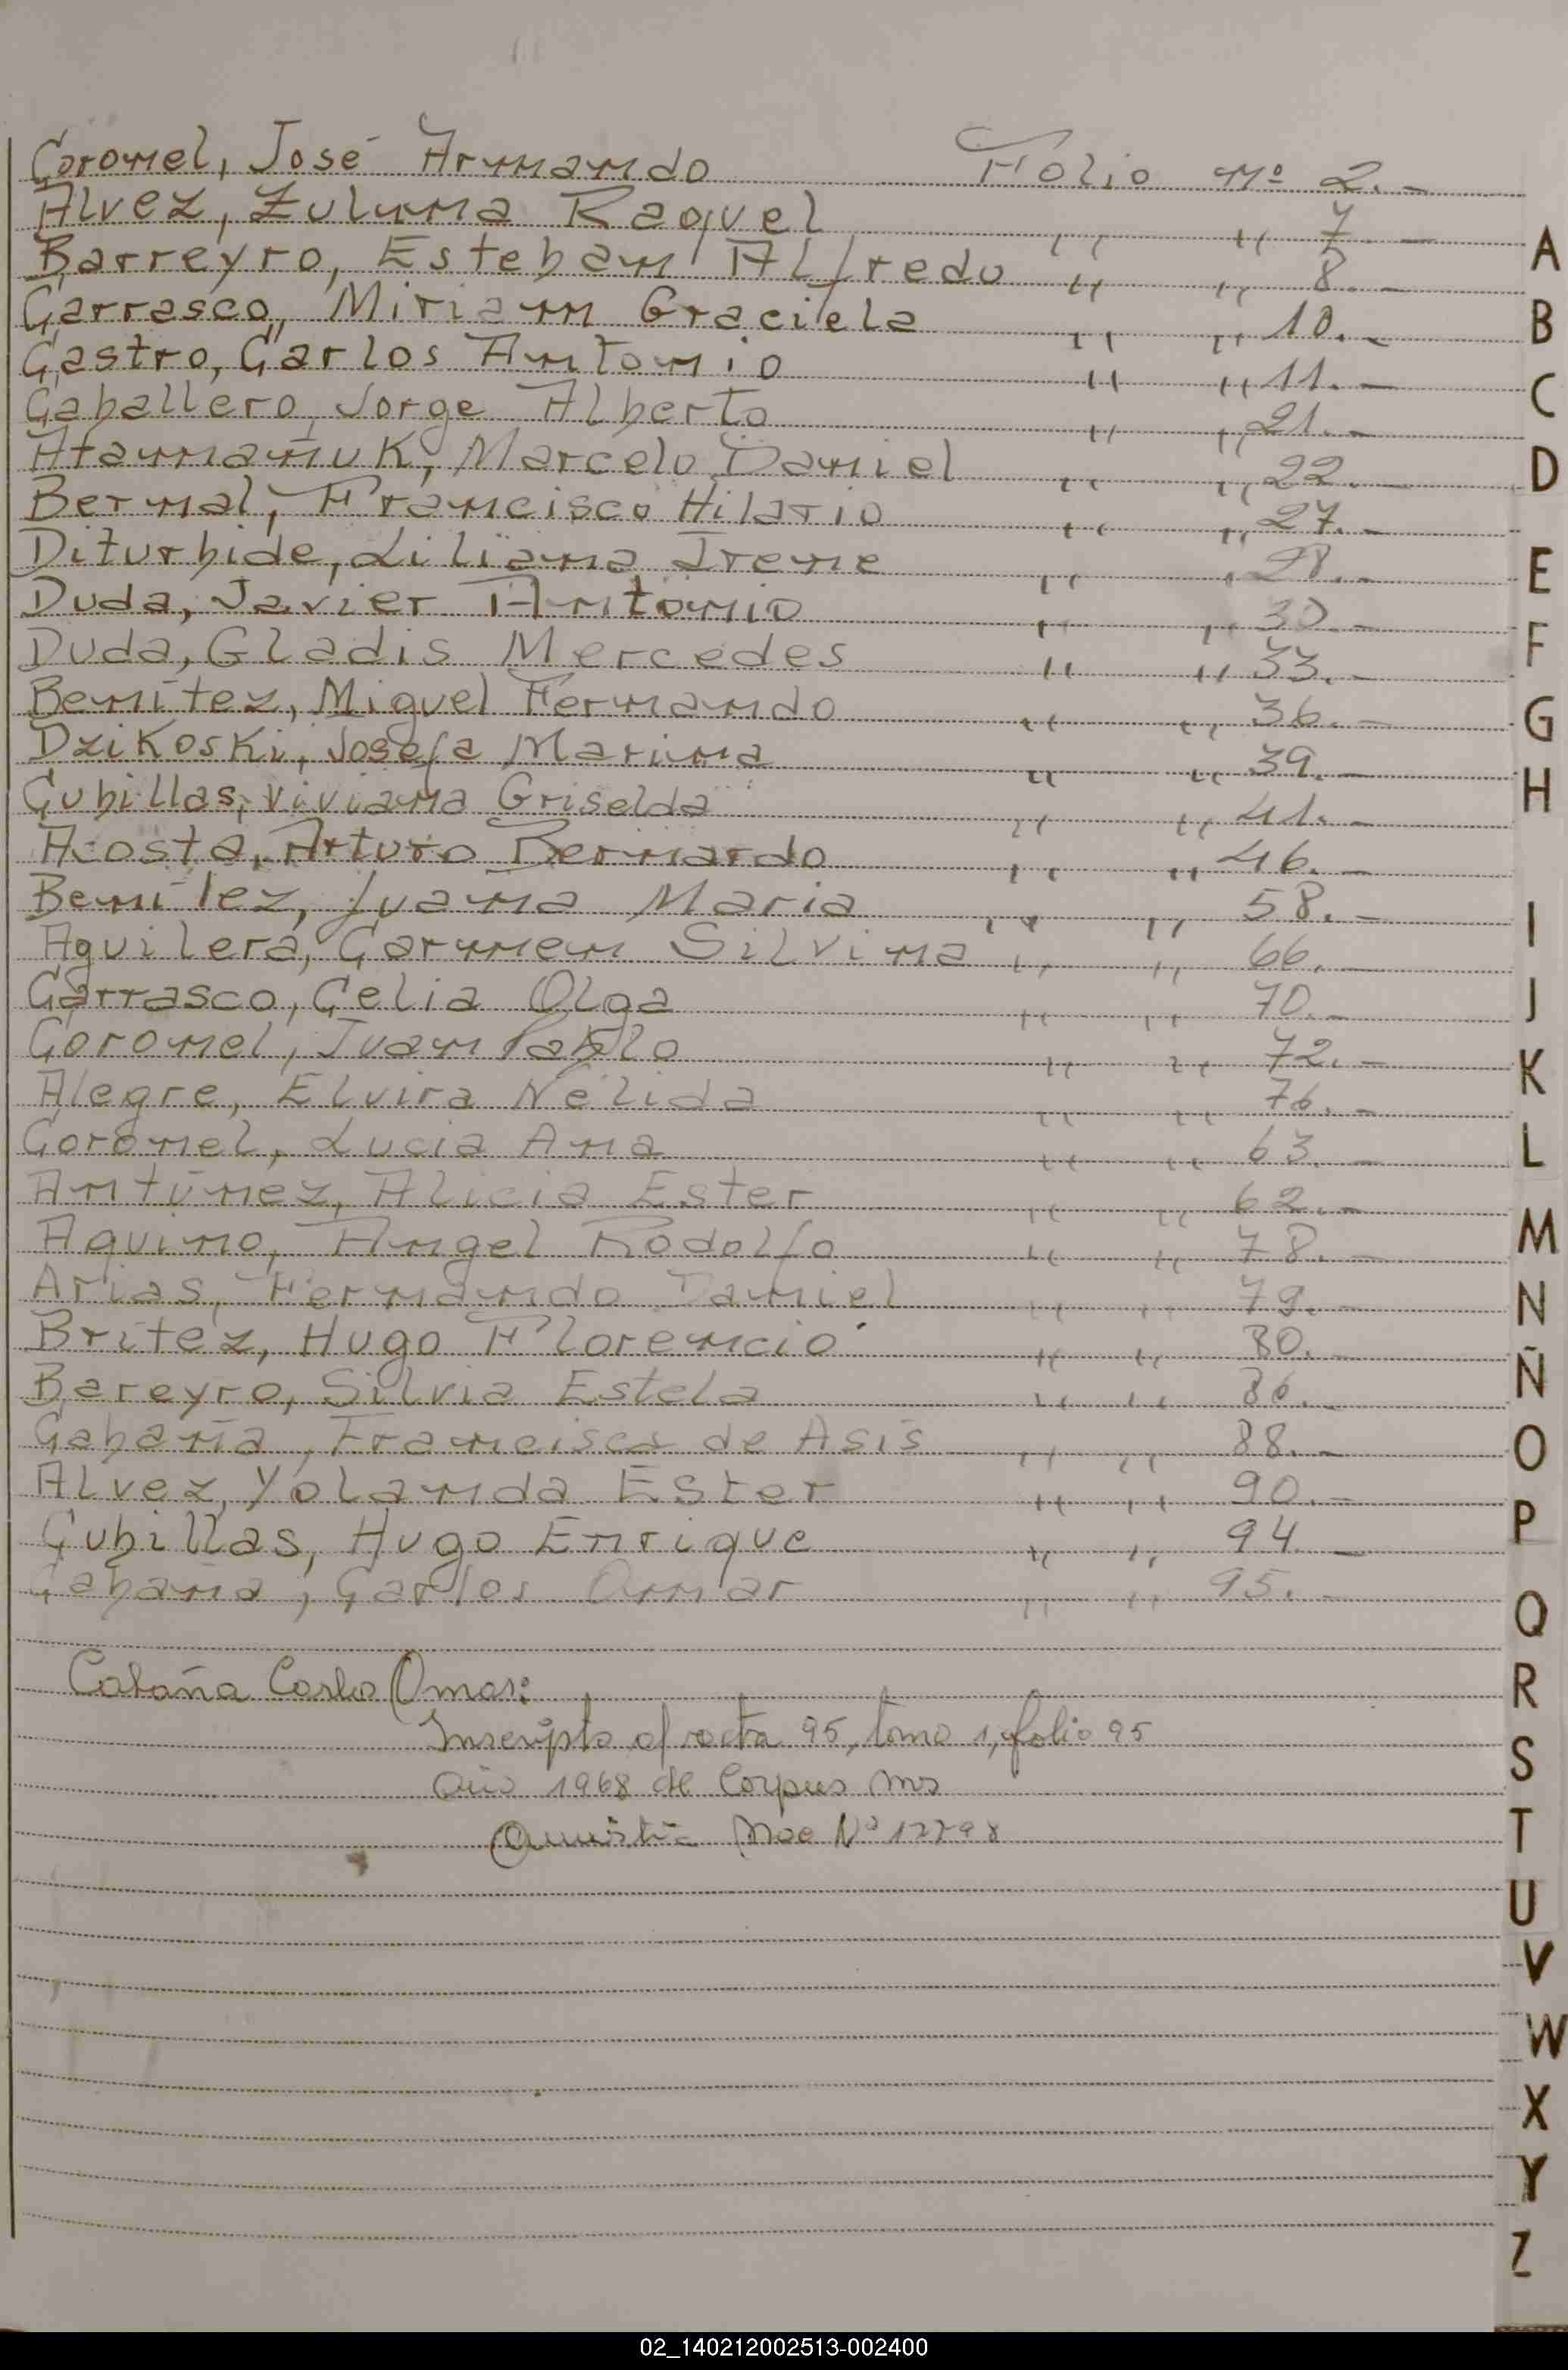 Coronel, José Armando Folio nº 2.-
Alvez, Zulma Raquel ,, ,, 7.-
Barreyro, Esteban Alfredo ,, ,, 8.-
Carrasco, Miriam Graciela ,, ,, 10.-
Castro, Carlos Antonio ,, ,, 11.-
Caballero, Jorge Alberto ,, ,, 21.-
Atamañuk, Marcelo Daniel ,, ,, 22.-
Bernal, Francisco Hilario ,, ,, 27.-
Diturbide, Liliana Irene ,, ,, 28.-
Duda, Javier Antonio ,, ,, 30.-
Duda, Gladis Mercedes ,, ,, 33.-
Benítez, Miguel Fernando ,, ,, 36.-
Dzikoski, Josefa Marina ,, ,, 39.-
Cubillas, Viviana Griselda ,, ,, 41.-
Acosta, Arturo Bernardo ,, ,, 46.-
Benítez, Juana Maria ,, ,, 58.-
Aguilera, Carmen Silvina ,, ,, 66.-
Carrasco, Celia Olga ,, ,, 70.-
Coronel, Juan Pablo ,, ,, 72.-
Alegre, Elvira Nélida ,, ,, 76.-
Coronel, Lucia Ana ,, ,, 63.-
Antúnez, Alicia Ester ,, ,, 62.-
Aquino, Angel Rodolfo ,, ,, 78.-
Arias, Fernando Daniel ,, ,, 79.-
Britez, Hugo Florencio ,, ,, 80.-
Bareyro, Silvia Estela ,, ,, 86.-
Cabaña, Francisca de Asis ,, ,, 88.-
Alvez, Yolanda Ester ,, ,, 90.-
Cubillas, Hugo Enrique ,, ,, 94.-
Cabaña, Carlos Omar ,, ,, 95.-
Cabaña Carlos Omar:
Inscripto al acta 95, tomo 1, folio 95
año 1968 de Corpus Mns
Amnistia Nac Nº
A
B
C
D
E
F
G
H
I
J
K
L
M
N
Ñ
O
P
Q
R
S
T
U
V
W
X
Y
Z
02_140212002513-002400